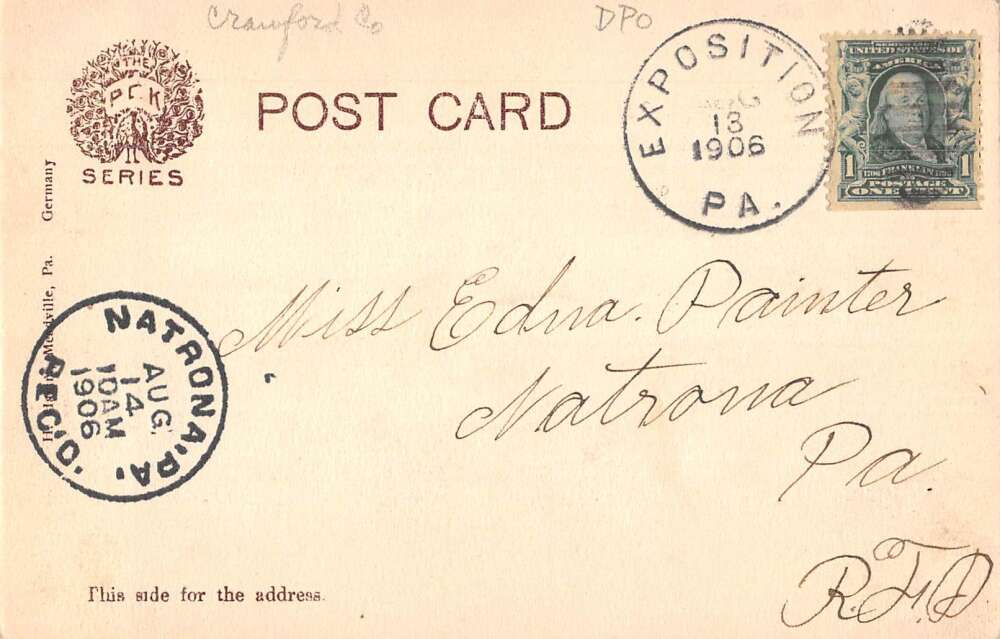 Crawford Co
DPO
THE
PCK
SERIES
POST CARD
EXPOSITION
13
1906
PA.
SERIES 1902
UNITED STATES OF
AMERICA
1
1706 FRANKLIN 1790
1
POSTAGE
ONE CENT
Meadville, Pa. Germany
NATRONA, PA.
AUG.
14
10AM
1906
REC'D.
Miss Edna. Painter
Natrona
Pa.
R.F.D.
This side for the address.